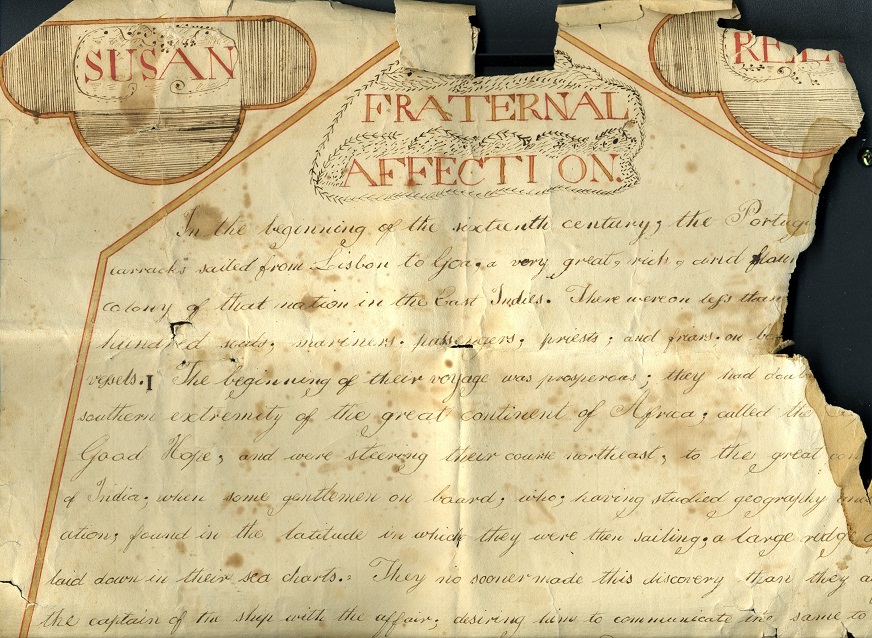 SUSAN
FRATERNAL
AFFECTION.
In the beginning of the sixteenth century; the Portugu
carracks sailed from Lisbon to Goa, a very great, rich, and flour
colony of that nation in the East Indies. There were on less than
hundred souls; mariners, passengers, priests, and friars, on
vessels. The beginning of their voyage was prosperous; they had doub
southern extremity of the great continent of Africa; called the
Good Hope; and were steering their course northeast; to the great con
of India; when some gentlemen on board; who; having studied geography and
ation; found in the latitude in which they were then sailing; a large ridge o
laid down in their sea charts. They no sooner made this discovery than they a
the captain of the ship with the affair; desiring him to communicate the same to